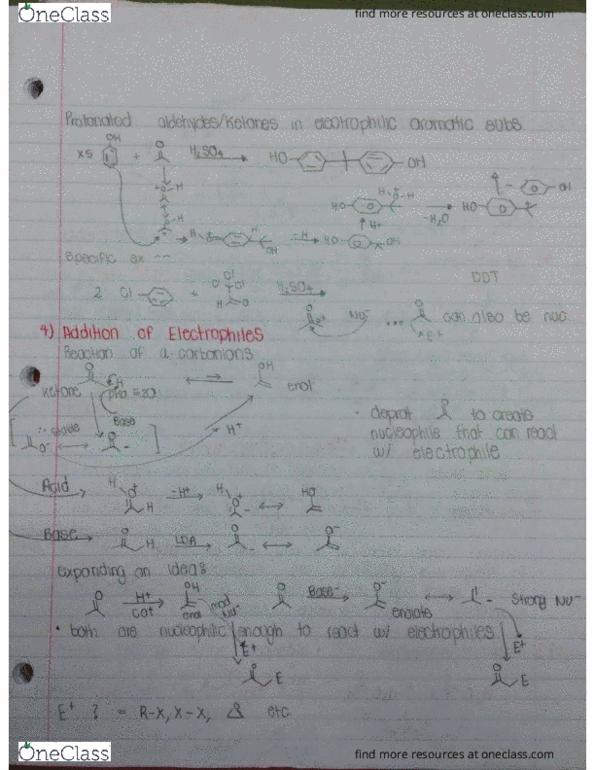 OneClass
find more resources at oneclass.com
Protonated aldehydes/ketones in electrophilic aromatic subs.
OH
x5 + O H₂SO₄ HO OH
H
-H₂O
HO OH
H+
-H
HO OH
Specific ex --
2 Cl + Cl Cl Cl H O H₂SO₄ DDT
Nu⁻ ... can also be nuc.
E+
4) Addition of Electrophiles
Reaction of a carbanions
ketone H pka = 20 OH enol
Base
H+
• deprot to create
nucleophile that can react
w/ electrophile
Acid H O+ H -H+ HO
Base O H LDA O⁻
expanding on ideas
O H+ cat OH enol mod Nu⁻ O Base⁻ O⁻ enolate Strong Nu⁻
• both are nucleophilic enough to react w/ electrophiles
E+ E+
O E O E
E+ } = R-X, X-X, etc
OneClass
find more resources at oneclass.com